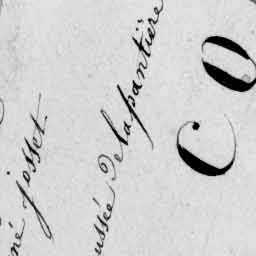 né josset
ussée de lapantière
CO